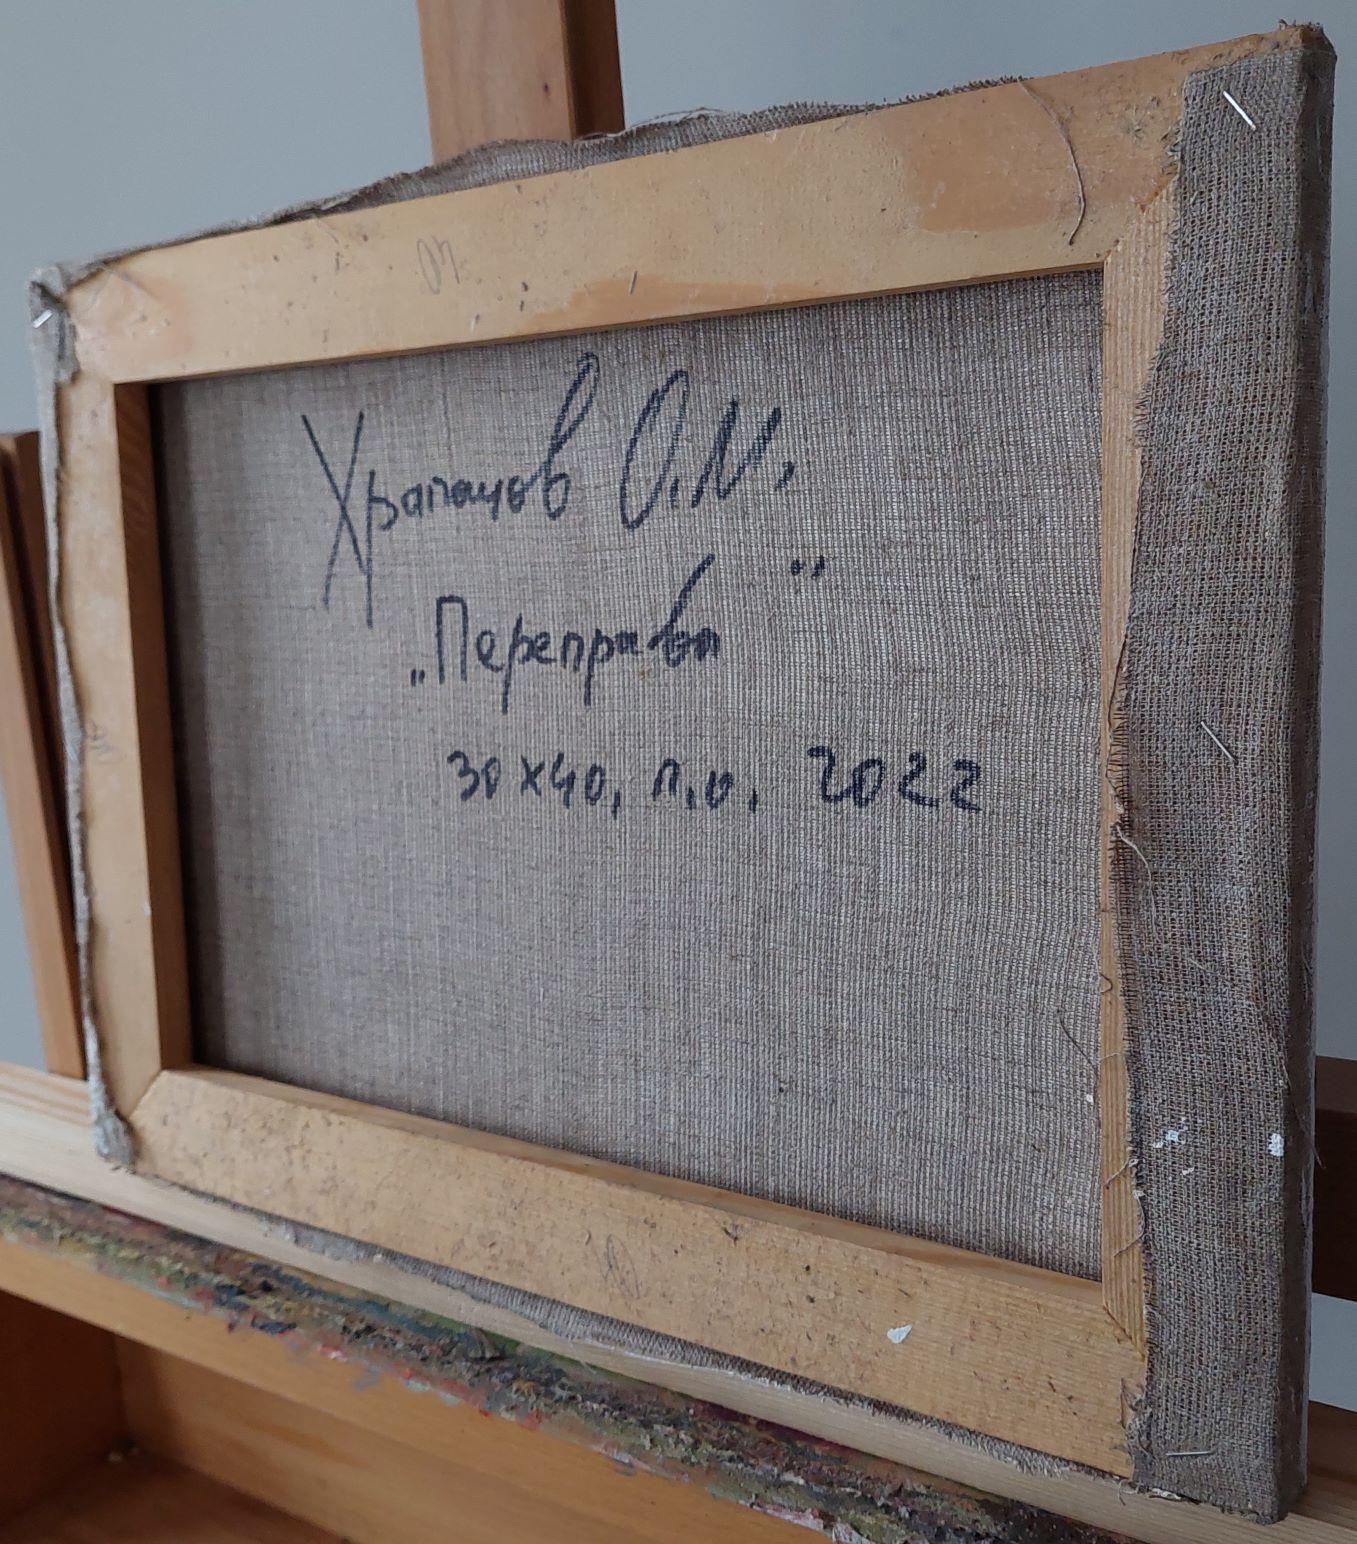 Храпачов О.М.
„Переправа"
30х40, п.о. 2022
40